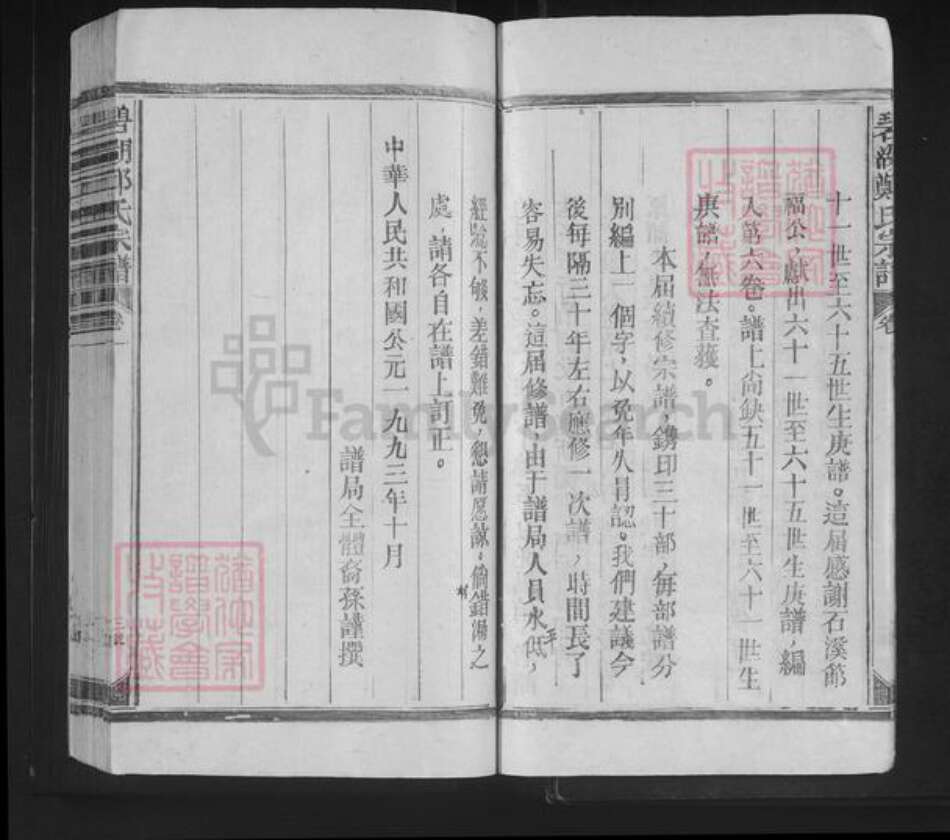 碧湖鄭氏宗譜 卷
十一世至六十五世生庚譜。這届感謝石溪節
福公，獻出六十一世至六十五世生庚譜，編
入第六卷。譜上尚缺五十一世至六十一世生
庚譜，無法查獲。
本届續修宗譜，鎸印三十部，每部譜分
別編上一個字，以免年久冒認。我們建議今
後每隔三十年左右應修一次譜，時間長了
容易失忘。這届修譜，由于譜局人員水平低，
經驗不够，差錯難免，懇請愿諒。倘有錯漏之
處，請各自在譜上訂正。
中華人民共和國公元一九九三年十月
譜局全體裔孫謹撰
氏宗譜
FamilySearch